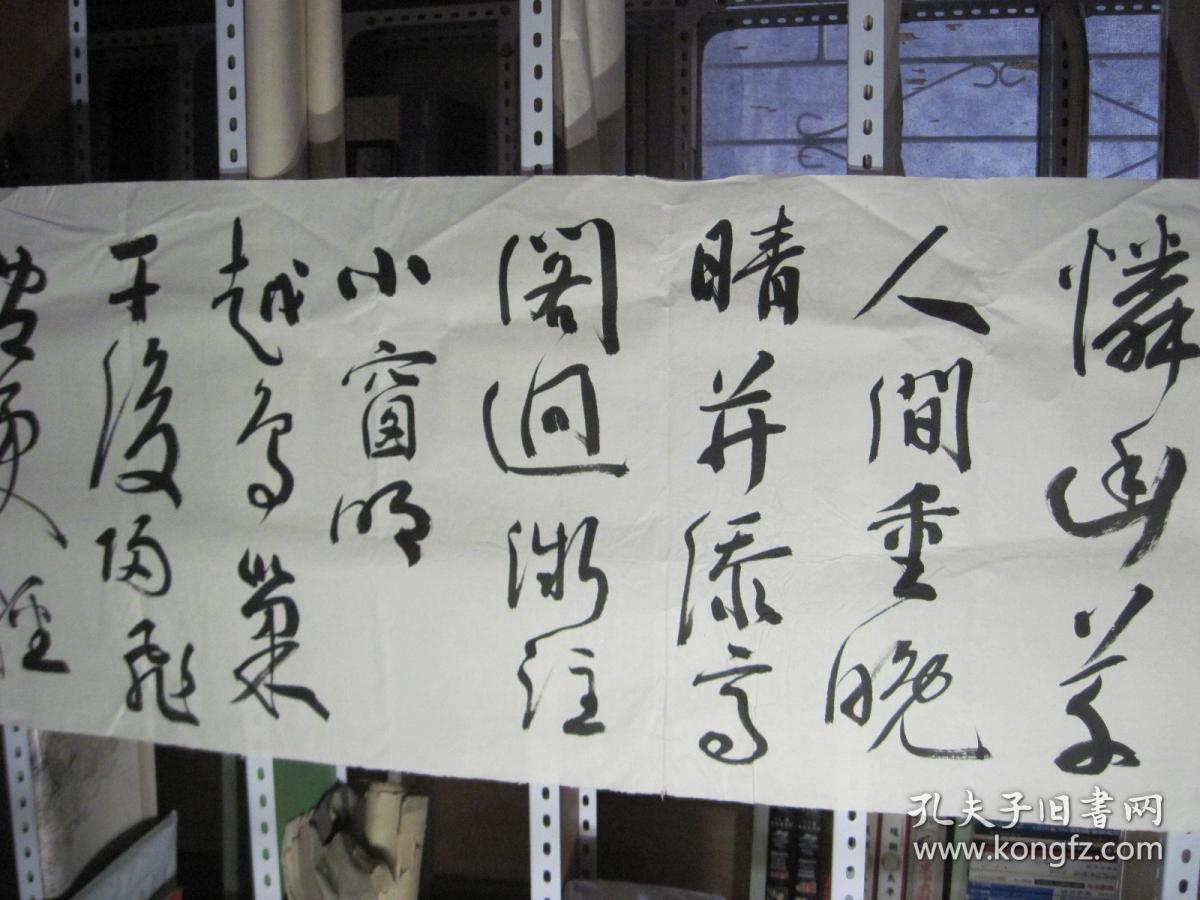 憐幽草
人間重晚
晴并添高
閣迥微注
小窗明
越鳥巢
干後归飛
孔夫子旧書网
www.kongfz.com